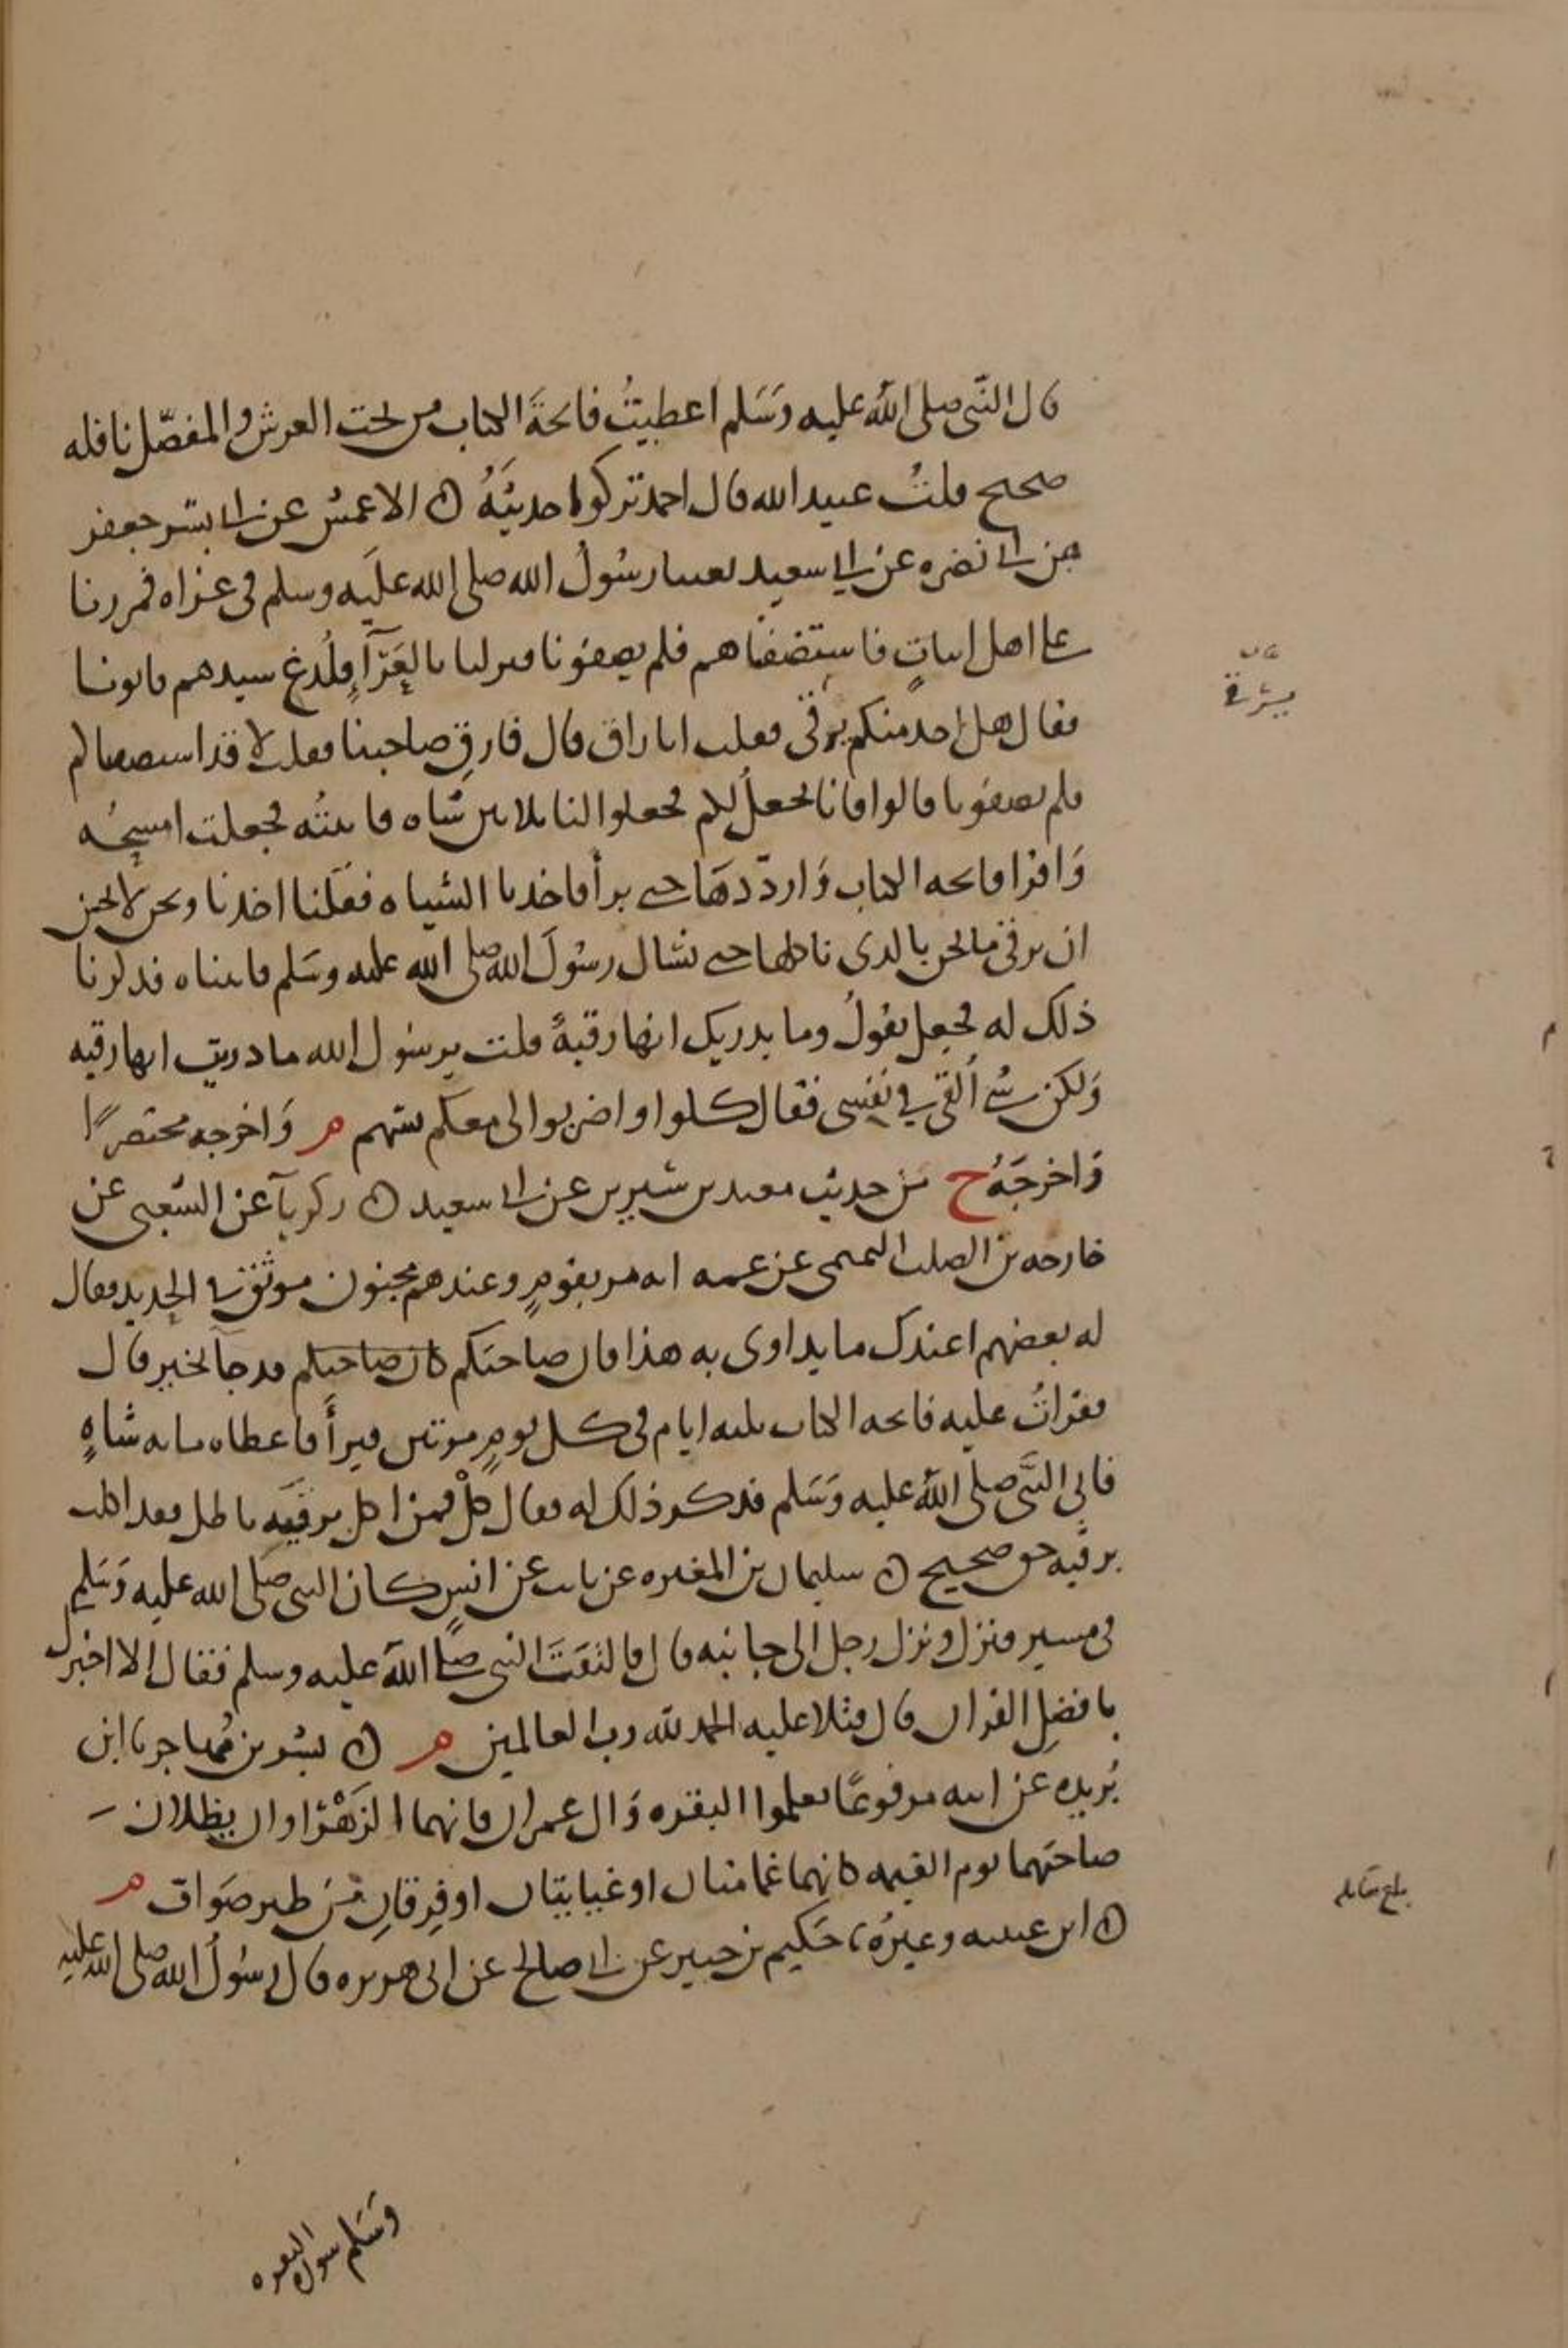 قال النَّبي صلى الله عليه وَسَلم اعطيتُ فاتحةَ الكتاب من تحت العرش والمفصّل نافله
صحيح قلتُ عبيد الله قال احمد تركوا حديثَهُ ن الاعمش عن ابي بشر جعفر
عن ابي نضره عن ابي سعيد بعثنا رسُولُ الله صلى الله علَيه وسلم في غزاه فمررنا
على اهل ابياتٍ فاستضفناهم فلم يضيفونا فنزلنا بالعَرَآءِ فلُدغ سيدهم فاتونا
فقال هل احد منكم يرقي فقلت انا راق قال فارقِ صاحبنا فقلت لا قد استضفناكم
فلم تضيفونا قالوا فانا نجعلُ لكم فجعلوا لنا ثلاثين شاه فاتيته فجعلت امسحُه
وَاقرا فاتحه الكتاب وَارددهَا حتى برأ فاخذنا الشياه فقلنا اخذنا ونحن لا نحسن
ان نرقي ما نحن بالذي ناكلها حتى نسال رسُولَ الله صلى الله عليه وسَلم فاتيناه فذكرنا
ذلك له فجعل يقولُ وما يدريك انها رقيةً قلت يرسُول الله ما دريت انها رقيه
وَلكن شي اُلقي في نفسي فقال كلوا واضربوا لي معكم بسهم م وَاخرجه مختصرًا
وَاخرجَهُ ح من حديث معبد بن سيرين عن ابي سعيد ن زكريآ عن الشعبي عن
خارجه بن الصلت التميمي عن عمه انه مر بقومٍ وعندهم مجنون موثق في الحديد فقال
له بعضهم اعندك ما يداوى به هذا فان صاحبكم كان صاحبكم قد جآ بخير قال
فقراتُ عليه فاتحه الكتاب ثلثه ايام في كل يومٍ مرتين فبرأَ فاعطاه مايه شاهٍ
فاتى النَّبي صلى الله عليه وَسَلم فذكر ذلك له فقال كُلْ فمن اكل برقيَه باطل فقد اكلت
برقيه حق صحيح ن سليمان بن المغيره عن ثابت عن انسٍ كان النبي صَلى الله عليه وَسَلم
في مسير فنزل ونزل رجل الى جانبه قال فالتفَتَ النبي صلى الله عليه وسلم فقال الا اخبرك
بافضلِ القران قال فتلا عليه الحمد لله رب العالمين م ن بشر بن مُهاجر نا ابن
بُريده عن ابيه مرفوعًا تعلموا البقره وَال عمران فانهما الزَهْرَاوان يظلان
صاحبهما يوم القيمه كانهما غمامتان او غيايتان او فِرقانِ مِن طير صَواف م
ن ابن عيينه وغيرُه، حَكيم بن جبير عن ابي صالح عن ابي هريره قال رسُولُ الله صلى الله عليه
بلغ مقابله
وَسَلم سوره البقره